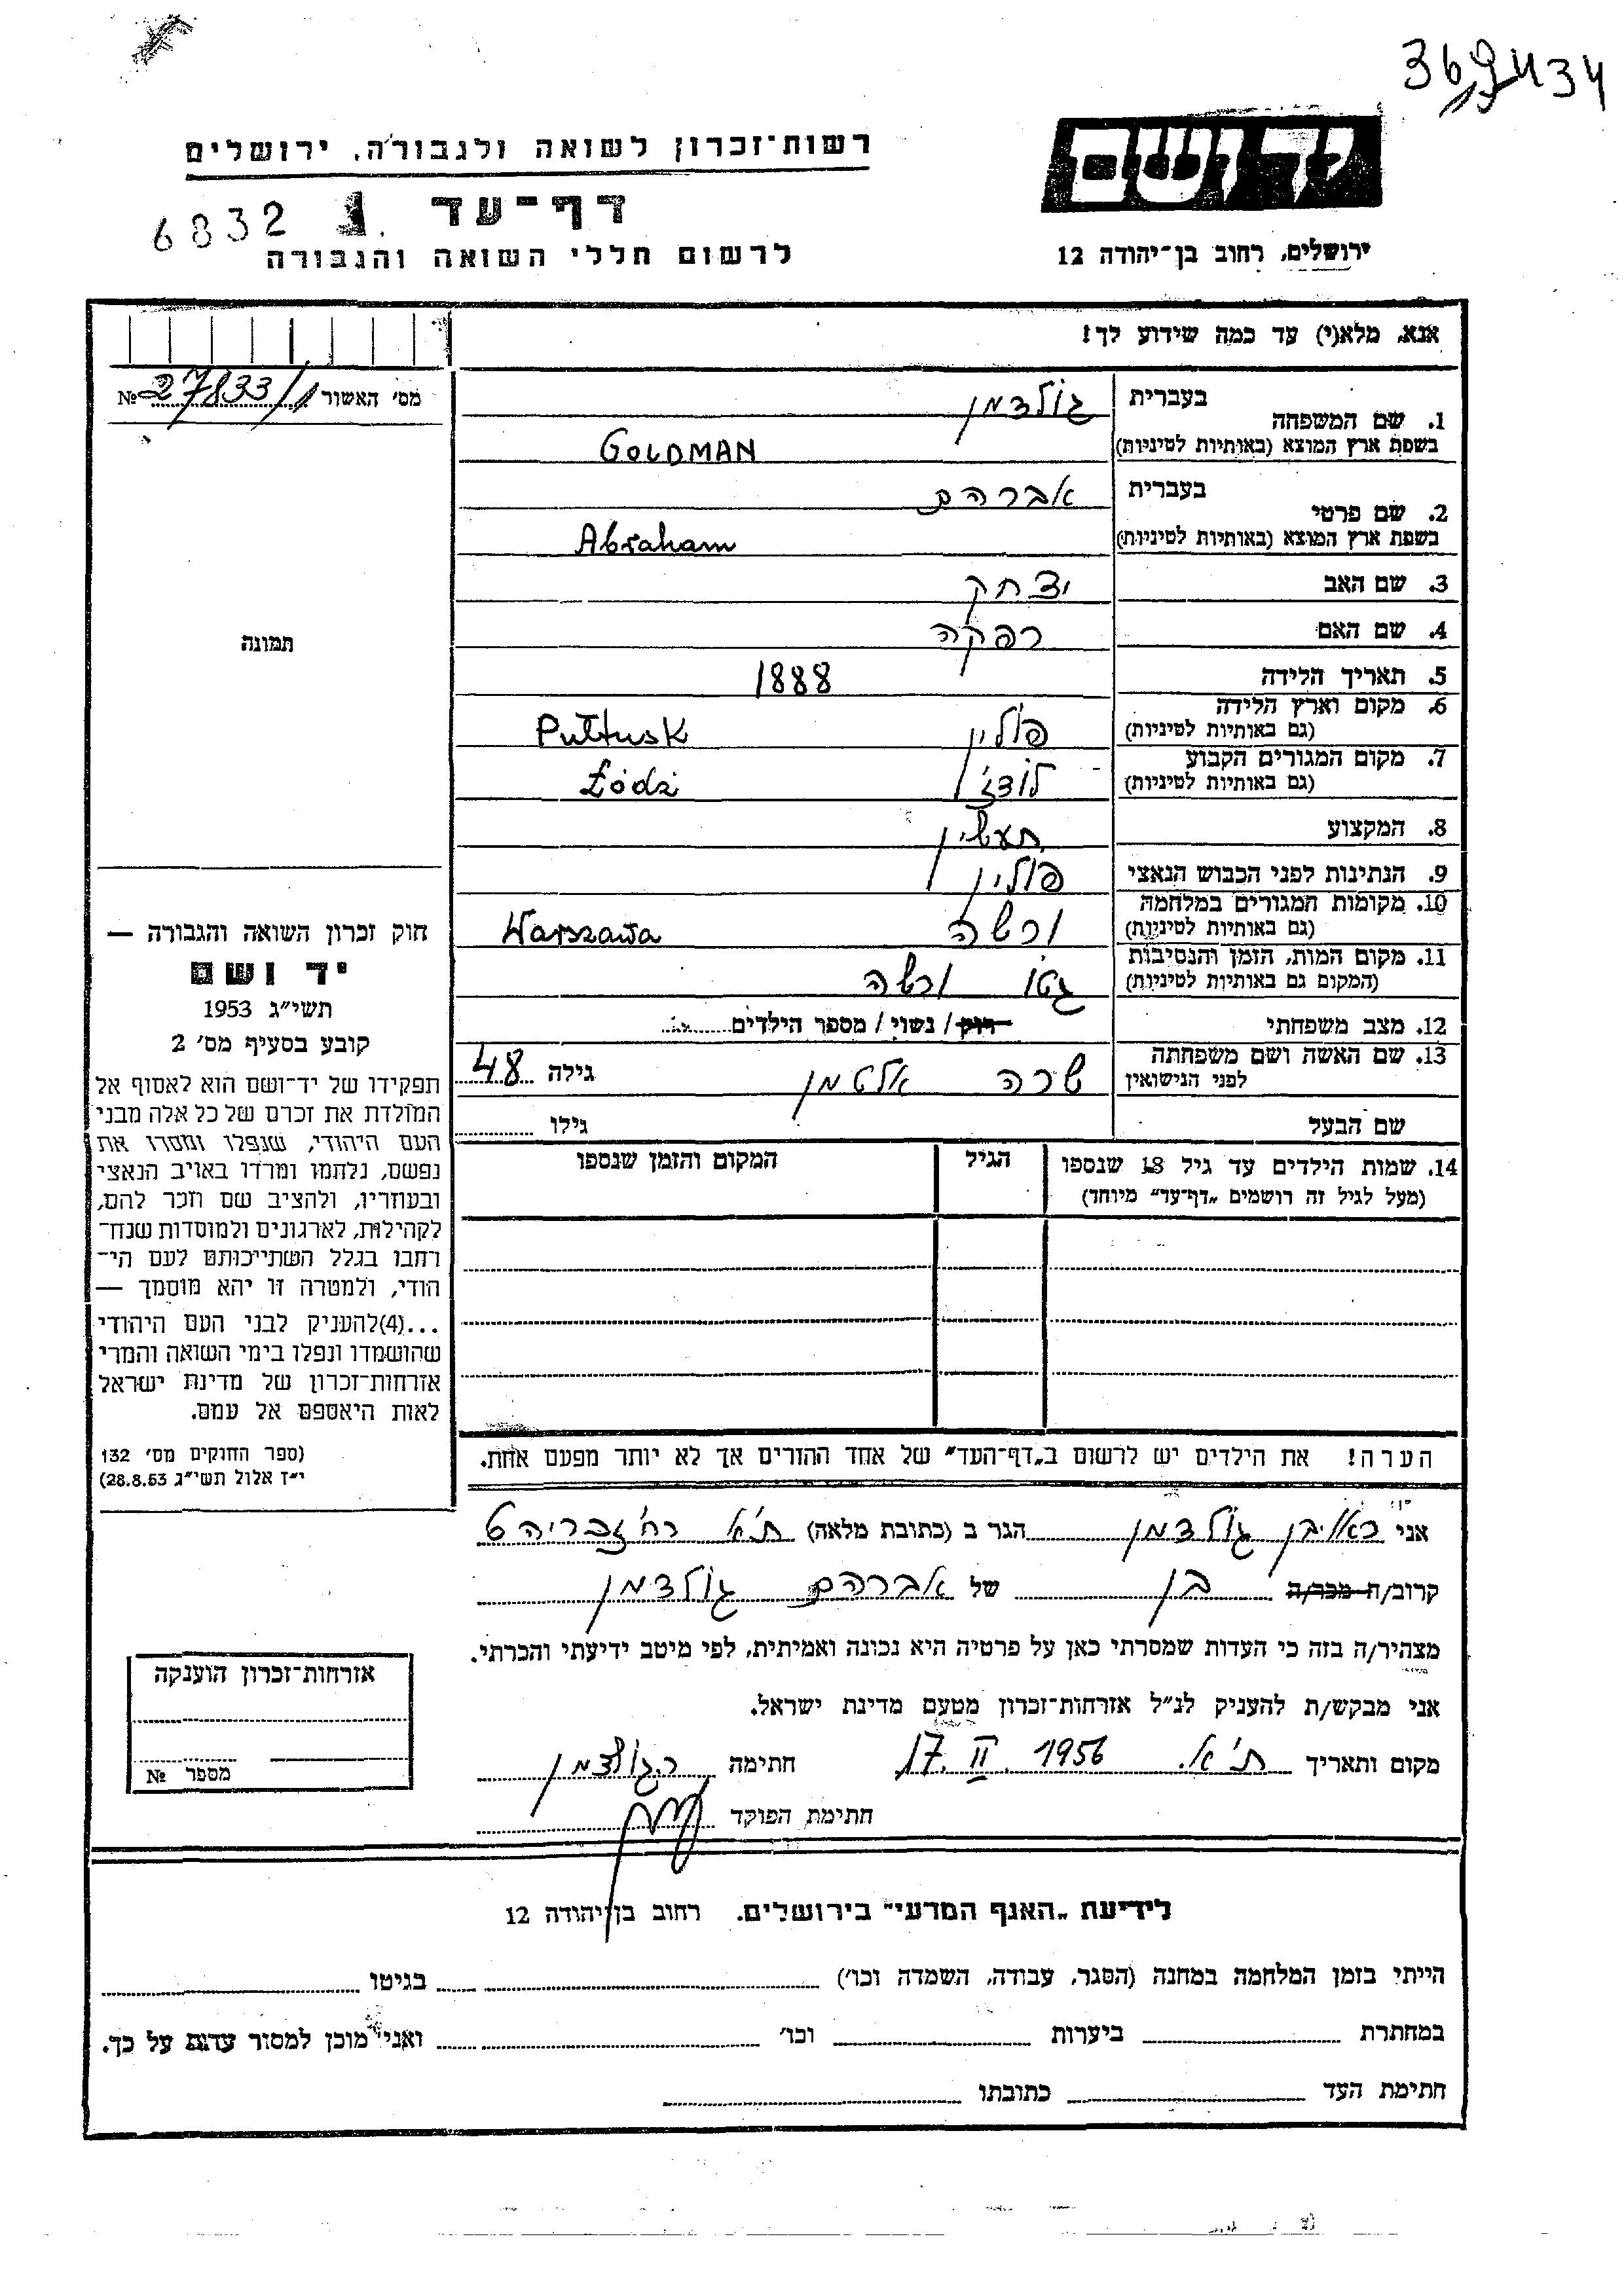 369434
רשות־זכרון לשואה ולגבורה, ירושלים
יד ושם
דף־עד
6832
לרשום חללי השואה והגבורה
ירושלים, רחוב בן־יהודה 12
אנא, מלא(י) עד כמה שידוע לך!
מס' האשור 27833/1 №
1. שם המשפחה
בעברית גולדמן
בשפת ארץ המוצא (באותיות לטיניות) GOLDMAN
2. שם פרטי
בעברית אברהם
בשפת ארץ המוצא (באותיות לטיניות) Abraham
3. שם האב יצחק
4. שם האם רפקה
תמונה
5. תאריך הלידה 1888
6. מקום וארץ הלידה
(גם באותיות לטיניות) פולין Pułtusk
7. מקום המגורים הקבוע
(גם באותיות לטיניות) לודז' Łódź
8. המקצוע תעשין
9. הנתינות לפני הכבוש הנאצי פולין
10. מקומות המגורים במלחמה
(גם באותיות לטיניות) ורשה Warszawa
11. מקום המות, הזמן והנסיבות
(המקום גם באותיות לטיניות) גטו ורשה
12. מצב משפחתי רוק / נשוי / מספר הילדים
13. שם האשה ושם משפחתה
לפני הנישואין שרה אלטמן גילה 48
שם הבעל גילו
14. שמות הילדים עד גיל 18 שנספו הגיל המקום והזמן שנספו
(מעל לגיל זה רושמים „דף־עד" מיוחד)
חוק זכרון השואה והגבורה —
יד ושם
תשי"ג 1953
קובע בסעיף מס' 2
תפקידו של יד־ושם הוא לאסוף אל
המולדת את זכרם של כל אלה מבני
העם היהודי, שנפלו ומסרו את
נפשם, נלחמו ומרדו באויב הנאצי
ובעוזריו, ולהציב שם וזכר להם,
לקהילות, לארגונים ולמוסדות שנח־
רבו בגלל השתייכותם לעם הי־
הודי, ולמטרה זו יהא מוסמך —
...(4) להעניק לבני העם היהודי
שהושמדו ונפלו בימי השואה והמרי
אזרחות־זכרון של מדינת ישראל
לאות היאספם אל עמם.
(ספר החוקים מס' 132
י"ז אלול תשי"ג 28.8.53)
הערה! את הילדים יש לרשום ב„דף־העד" של אחד ההורים אך לא יותר מפעם אחת.
אני ראובן גולדמן הגר ב (כתובת מלאה) ת"א רח'
קרוב/ה מכר/ה בן של אברהם גולדמן
מצהיר/ה בזה כי העדות שמסרתי כאן על פרטיה היא נכונה ואמיתית, לפי מיטב ידיעתי והכרתי.
אני מבקש/ת להעניק לנ"ל אזרחות־זכרון מטעם מדינת ישראל.
מקום ותאריך ת"א. 17. II. 1956 חתימה ר. גולדמן
חתימת הפוקד
אזרחות־זכרון הוענקה
מספר №
לידיעת „האגף המדעי" בירושלים. רחוב בן־יהודה 12
הייתי בזמן המלחמה במחנה (הסגר, עבודה, השמדה וכו') בגיטו
במחתרת ביערות וכו' ואני מוכן למסור עדות על כך.
חתימת העד כתובתו